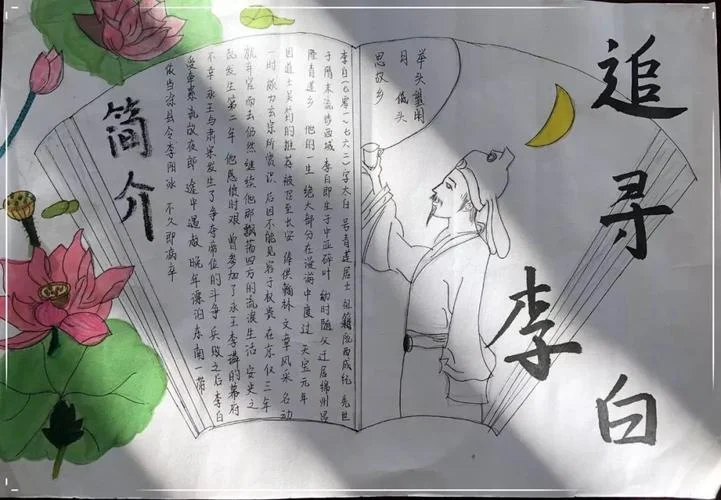 追寻李白
举头望明
月 低头
思故乡
李白(七零一~七六二)字太白 号青莲居士 祖籍陇西成纪 先世
于隋末流徙西域 李白即生于中亚碎叶 幼时随父迁居绵州昌
隆青莲乡 他的一生 绝大部分在漫游中度过 天宝元年
因道士吴筠的推荐 被召至长安 供俸翰林 文章风采 名动
一时 颇为玄宗所赏识 后因不能见容于权贵 在京仅三年
就弃官而去 仍然继续他那飘荡四方的流浪生活 安史之
乱发生第二年 他感愤时艰 曾参加了永王李璘的幕府
不幸 永王与肃宗发生了争夺帝位的斗争 兵败之后 李白
受牵累 流放夜郎 途中遇赦 晚年漂泊东南一带
依当涂县令李阳冰 不久即病卒
简介